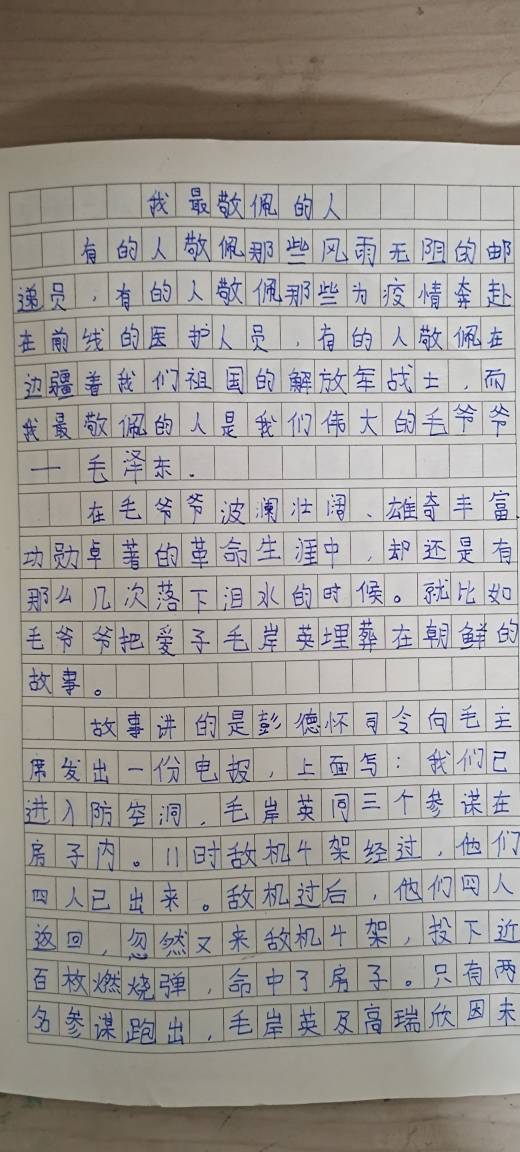 我最敬佩的人
有的人敬佩那些风雨无阻的邮
递员，有的人敬佩那些为疫情奔赴
在前线的医护人员，有的人敬佩在
边疆着我们祖国的解放军战士，而
我最敬佩的人是我们伟大的毛爷爷
一毛泽东．
在毛爷爷波澜壮阔、雄奇丰富、
功勋卓著的革命生涯中，却还是有
那么几次落下泪水的时候。就比如
毛爷爷把爱子毛岸英埋葬在朝鲜的
故事。
故事讲的是彭德怀司令向毛主
席发出一份电报，上面写：我们已
进入防空洞，毛岸英同三个参谋在
房子内。11时敌机4架经过，他们
四人已出来。敌机过后，他们四人
返回，忽然又来敌机4架，投下近
百枚燃烧弹，命中了房子。只有两
名参谋跑出，毛岸英及高瑞欣因未